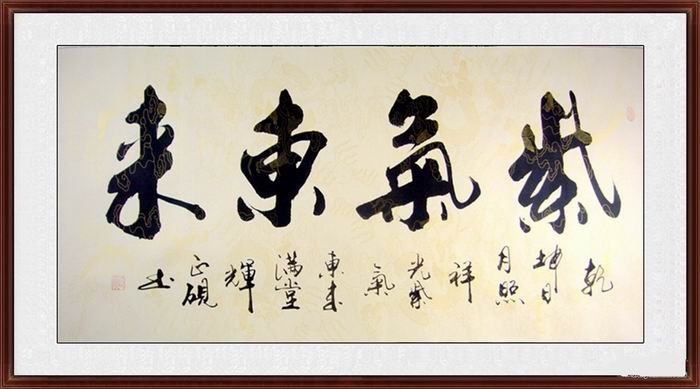 紫氣東来
乾坤日月照祥光紫氣東来满堂輝
正硯书